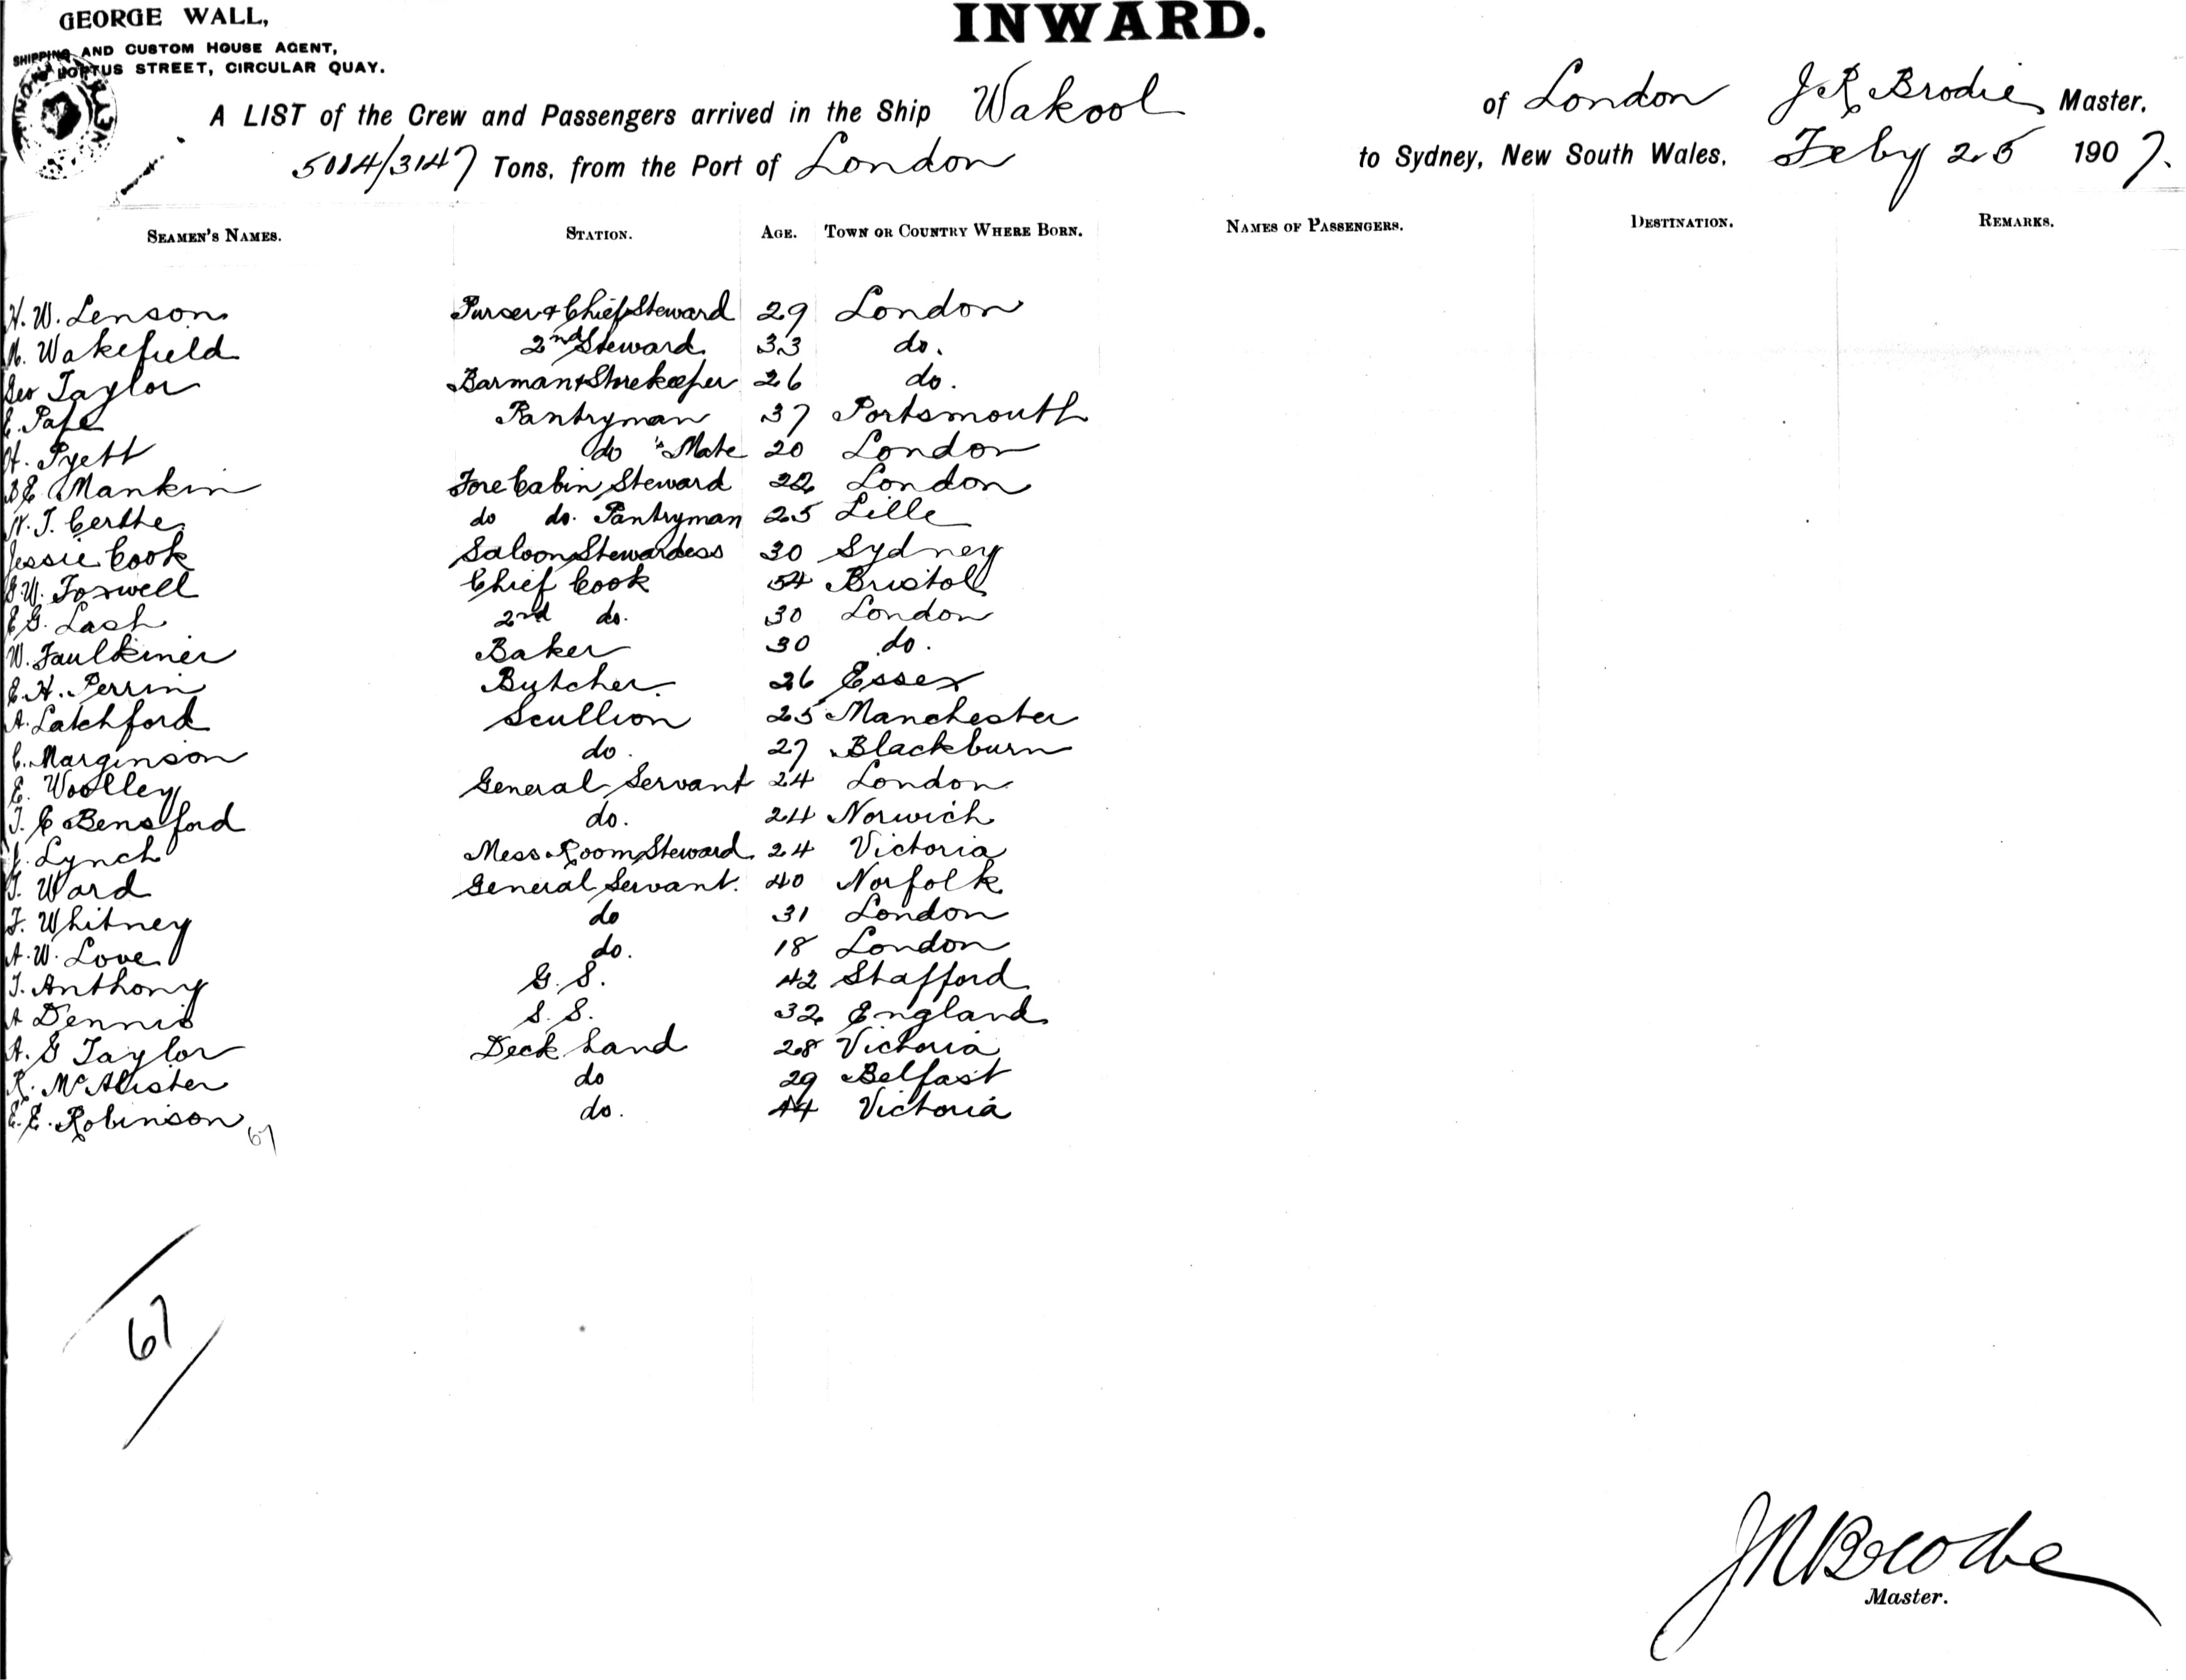 GEORGE WALL,
SHIPPING AND CUSTOM HOUSE AGENT,
STREET, CIRCULAR QUAY.
INWARD.
A LIST of the Crew and Passengers arrived in the Ship Wakool of London J R Brodie Master.
5014/3147 Tons, from the Port of London to Sydney, New South Wales, Feby 25 1907.
SEAMEN'S NAMES. STATION. AGE. TOWN OR COUNTRY WHERE BORN. NAMES OF PASSENGERS. DESTINATION. REMARKS.
H. W. Lenson Purser & Chief Steward 29 London
Wakefield 2nd Steward 33 do.
Geo Taylor Barman & Storekeeper 26 do.
E. Pafe Pantryman 37 Portsmouth
H. Pyett do 's Mate 20 London
Mankin Fore Cabin Steward 22 London
Certhe do do. Pantryman 25 Lille
Jessie Cook Saloon Stewardess 30 Sydney
Foxwell Chief Cook 54 Bristol
E G. Lash 2nd do. 30 London
W. Faulkiner Baker 30 do.
E. H. Perrin Butcher. 26 Essex
A. Latchford Scullion 25 Manchester
C. Marginson do. 27 Blackburn
E. Woolley General Servant 24 London
Bensford do. 24 Norwich
J. Lynch Mess Room Steward 24 Victoria
Ward General Servant. 40 Norfolk
F. Whitney do 31 London
A. W. Love do. 18 London
Anthony G. S. 42 Stafford
A Dennis S. S. 32 England
A. G Taylor Deck hand 28 Victoria
R. McAlister do 29 Belfast
E. E. Robinson do. 44 Victoria
67
67
J R Brodie
Master.